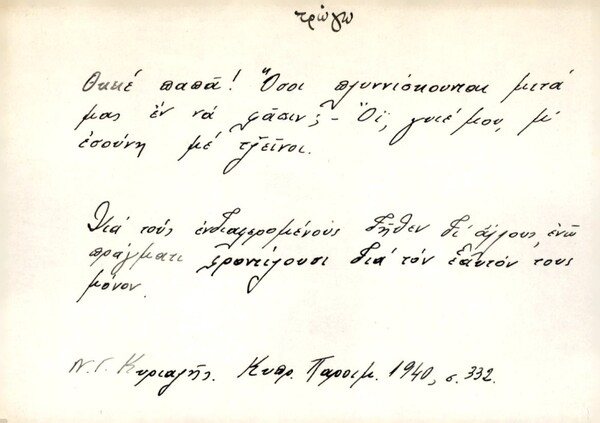 τρώγω
Θκιέ παπᾶ! Ὅσοι πλυννίσκουνται μετά
μας ἐν νά φᾶσιν; - Ὄϊ, γυιέ μου, μέ
ἐσούνη μέ τζεῖνοι.
Διά τούς ἐνδιαφερομένους δῆθεν δι' ἄλλους, ἐνῶ
πράγματι φροντίζουσι διά τόν ἑαυτόν τους
μόνον.
Ν. Γ. Κυριαζῆς. Κυπρ. Παροιμ. 1940, σ. 332.